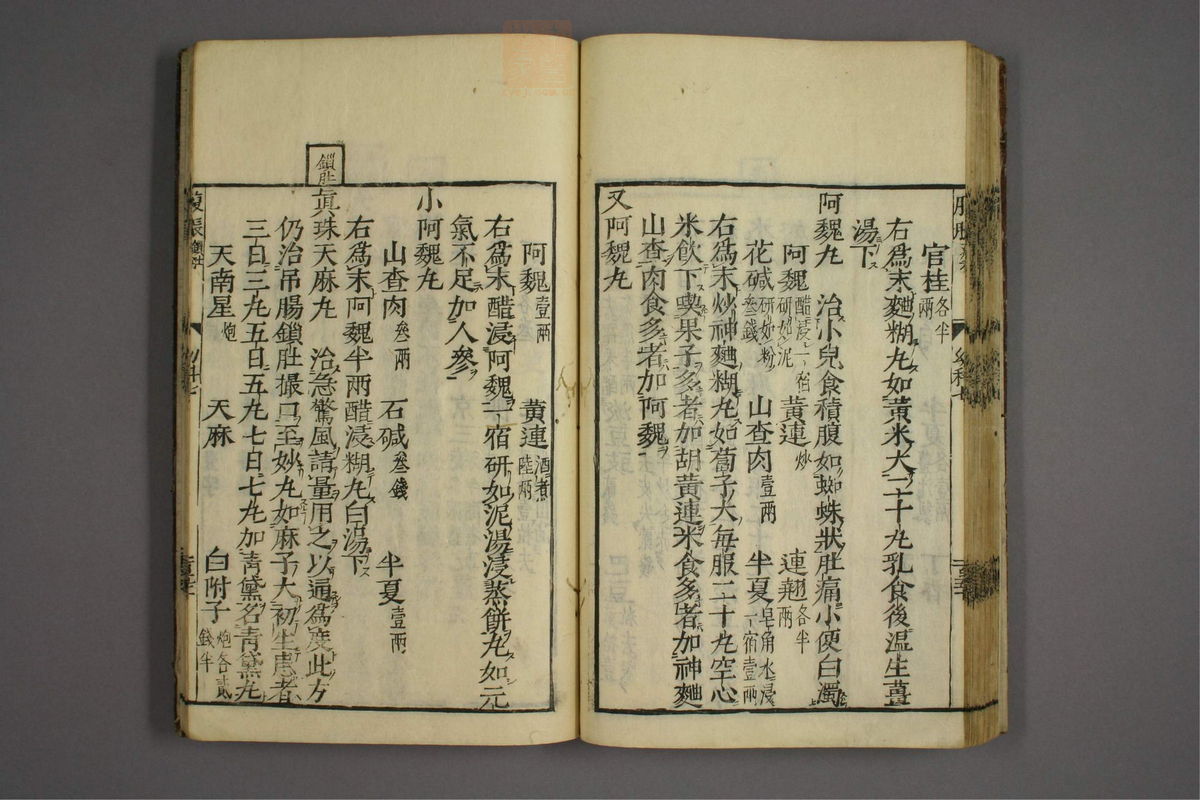 官桂各半兩
右爲末麯糊丸如黃米大一二十丸乳食後温生薑
湯下
阿魏丸　治小兒食積腹如蜘蛛狀肚痛小便白濁
阿魏醋浸一宿研如泥　黄連炒　連翹各半兩
花碱研如粉叄錢　山查肉壹兩　半夏皂角水浸一宿壹兩
右爲末炒神麯糊丸如蔔子大每服二十丸空心
米飲下喫果子多者加胡黄連米食多者加神麯
山查肉食多者加阿魏
又阿魏丸
阿魏壹兩　黄連酒煮陸兩
右爲末醋浸阿魏一宿研如泥湯浸蒸餅丸如元
氣不足加人參
小阿魏丸
山查肉叄兩　石碱叄錢　半夏壹兩
右爲末阿魏半兩醋浸糊丸白湯下
鎖肚
眞珠天麻丸　治急驚風請量用之以通爲度此方
仍治吊腸鎖肚撮口至妙丸如麻子大初生患者
三日三丸五日五丸七日七丸加青黛名青黛丸
天南星炮　天麻　白附子炮各貳錢半
腹脹鎖肚